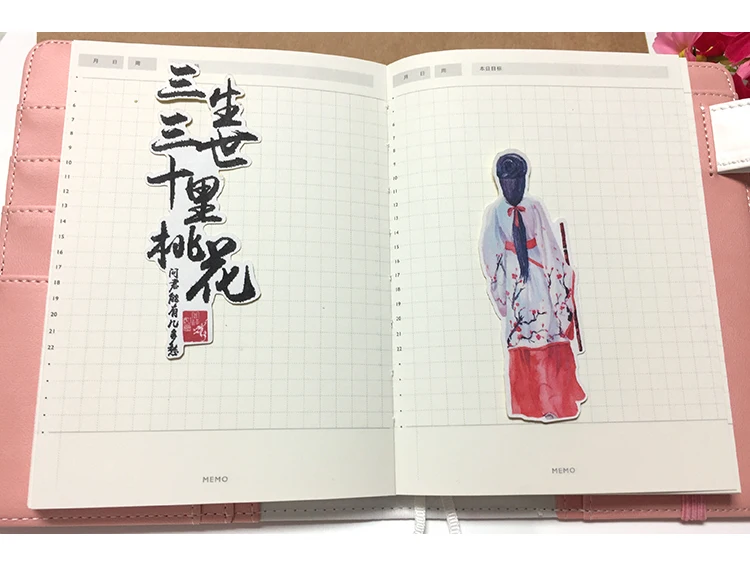 月 日 周
三生
三世
十里
桃花
问君能有几多愁
7
8
9
10
11
12
13
14
15
16
17
18
19
20
21
22
MEMO
月 日 周
本日目标
6
7
8
9
10
11
12
13
14
15
16
17
18
19
20
21
22
MEMO